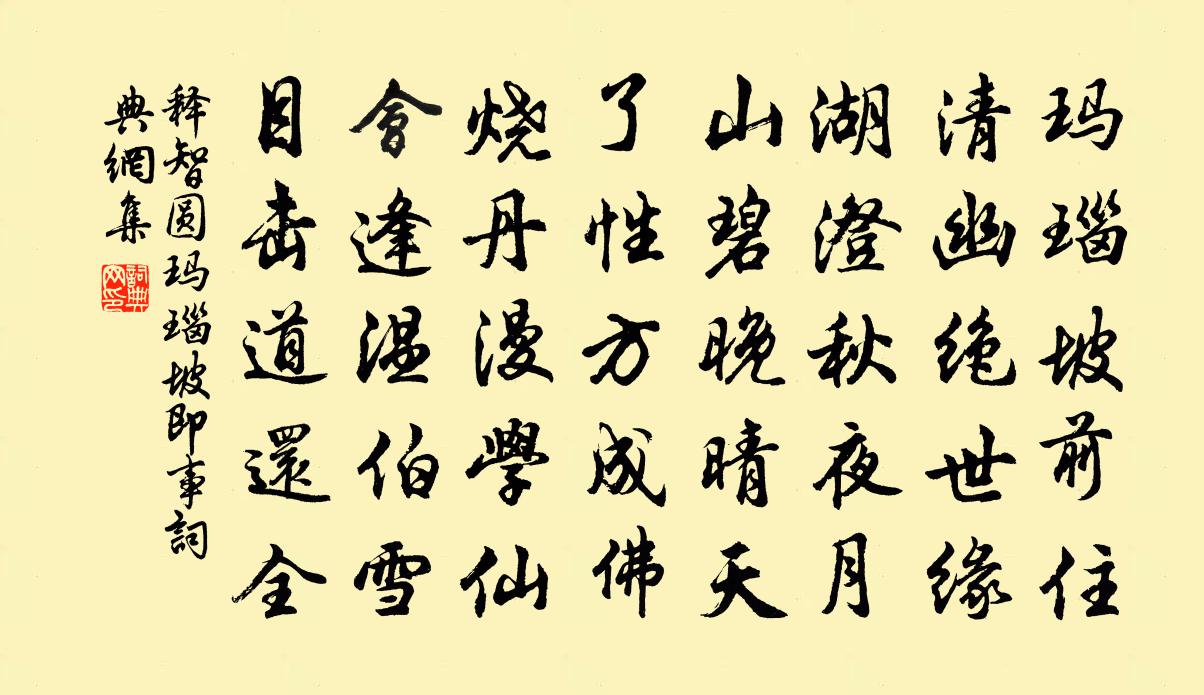 玛瑙坡前住
清幽绝世缘
湖澄秋夜月
山碧晚晴天
了性方成佛
烧丹漫学仙
會逢温伯雪
目击道還全
释智圆玛瑙坡即事詞
典網集
詞典
网印